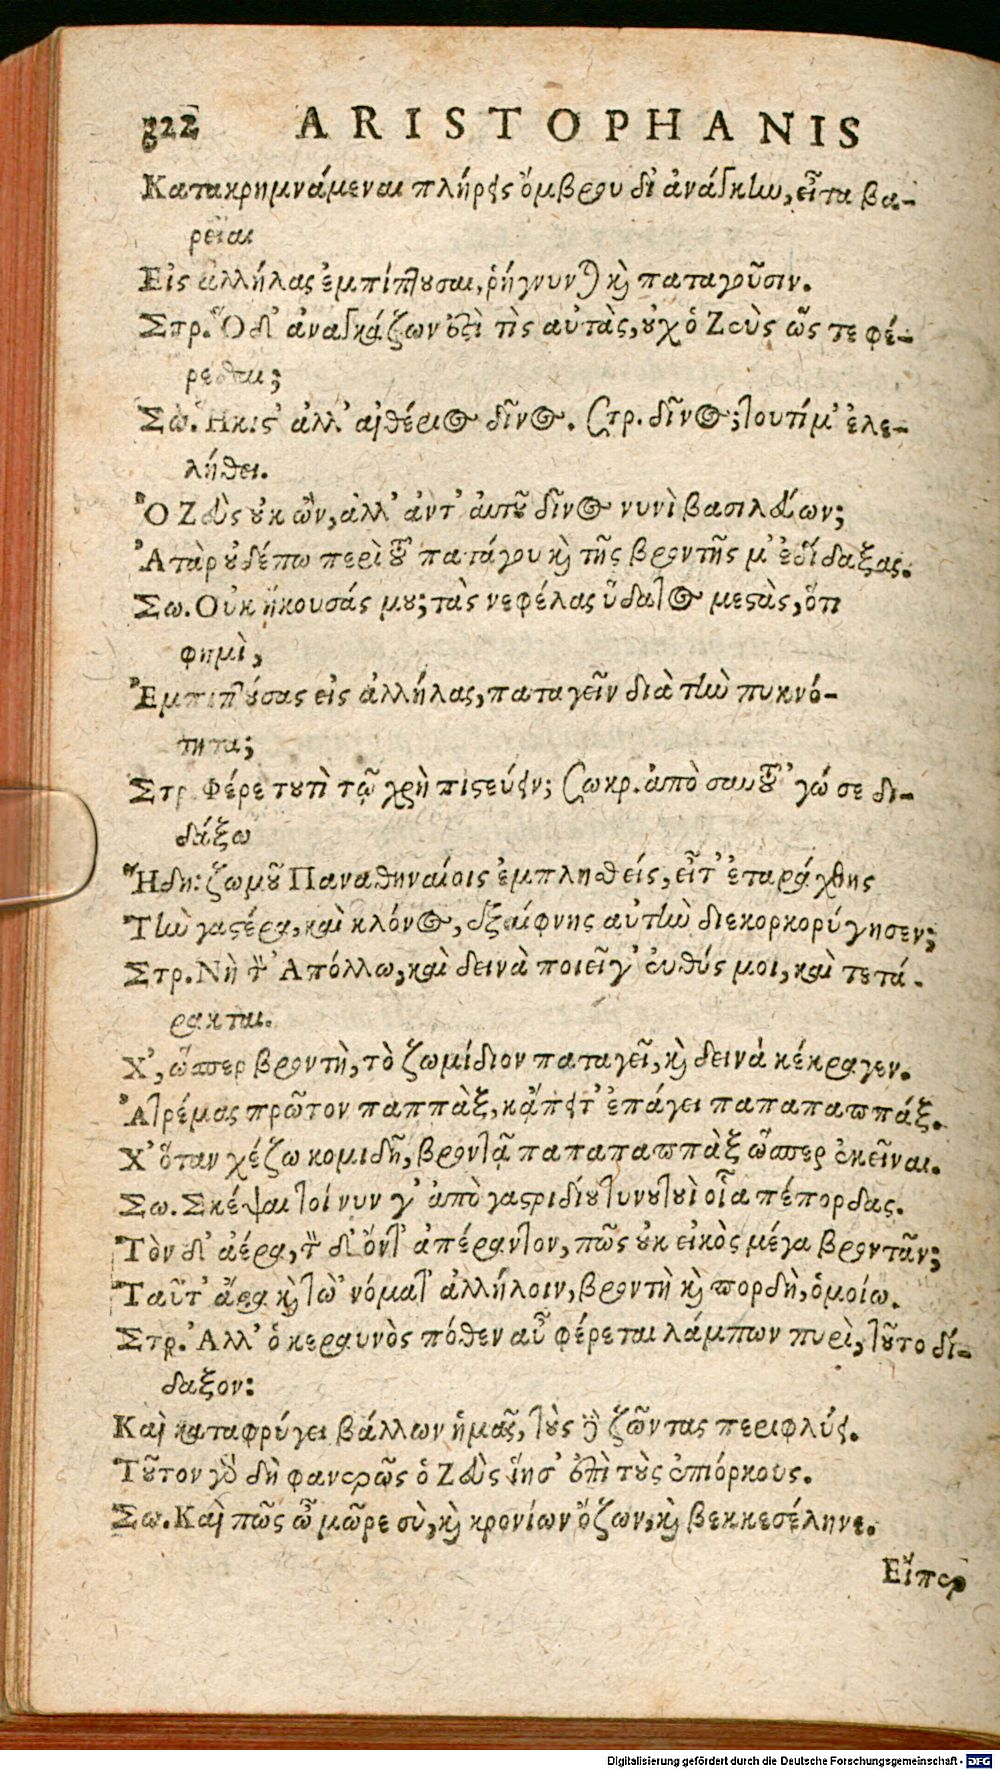 322 ARISTOPHANIS
Κατακρημνάμεναι πλήρεις ὄμβρου δι' ἀνάγκην, εἶτα βα-
ρεῖαι
Εἰς ἀλλήλας ἐμπίπτουσαι, ῥήγνυνται καὶ παταγοῦσιν.
Στρ. Ὁ δ' ἀναγκάζων ἐστὶ τὶς αὐτὰς, οὐχ ὁ Ζεὺς ὥς τε φέ-
ρεσθαι;
Σω. Ἥκιστ' ἀλλ' αἰθέριος δῖνος. Στρ. δῖνος; τουτί μ' ἐλε-
λήθει.
Ὁ Ζεὺς οὐκ ὢν, ἀλλ' ἀντ' αὐτοῦ δῖνος νυνὶ βασιλεύων;
Ἀτὰρ οὐδέπω περὶ τοῦ πατάγου καὶ τῆς βροντῆς μ' ἐδίδαξας.
Σω. Οὐκ ἤκουσάς μου; τὰς νεφέλας ὕδατος μεστὰς, ὅτι
φημὶ,
Ἐμπιπτούσας εἰς ἀλλήλας, παταγεῖν διὰ τὴν πυκνό-
τητα;
Στρ Φέρε τουτὶ τῷ χρὴ πιστεύειν; Σωκρ. ἀπὸ σαυτοῦ 'γώ σε δι-
δάξω
Ἤδη: ζωμοῦ Παναθηναίοις ἐμπλησθείς, εἶτ' ἐταράχθης
Τὴν γαστέρα, καὶ κλόνος, ἐξαίφνης αὐτὴν διεκορκορύγησεν;
Στρ. Νὴ τὸν Ἀπόλλω, καὶ δεινὰ ποιεῖ γ' εὐθύς μοι, καὶ τετά-
ρακται.
Χ', ὥσπερ βροντὴ, τὸ ζωμίδιον παταγεῖ, καὶ δεινὰ κέκραγεν.
Ἀτρέμας πρῶτον παππὰξ, κᾄπειτ' ἐπάγει παπαπαππάξ.
Χ' ὅταν χέζω κομιδῇ, βροντᾷ παπαπαππὰξ ὥσπερ ἐκεῖναι.
Σω. Σκέψαι τοίνυν γ' ἀπὸ γαστριδίου τυνουτουὶ οἷα πέπορδας.
Τὸν δ' ἀέρα, τὸν δ' ὄντ' ἀπέραντον, πῶς οὐκ εἰκὸς μέγα βροντᾶν;
Ταῦτ' ἄρα καὶ τὼ 'νόματ' ἀλλήλοιν, βροντὴ καὶ πορδὴ, ὁμοίω.
Στρ. Ἀλλ' ὁ κεραυνὸς πόθεν αὖ φέρεται λάμπων πυρὶ, τοῦτο δί-
δαξον:
Καὶ καταφρύγει βάλλων ἡμᾶς, τοὺς δὲ ζῶντας περιφλύει.
Τοῦτον γὰρ δὴ φανερῶς ὁ Ζεὺς ἵησ' ἐπὶ τοὺς ἐπιόρκους.
Σω. Καὶ πῶς ὦ μῶρε σὺ, καὶ κρονίων ὄζων, καὶ βεκκεσέληνε.
Εἴπερ